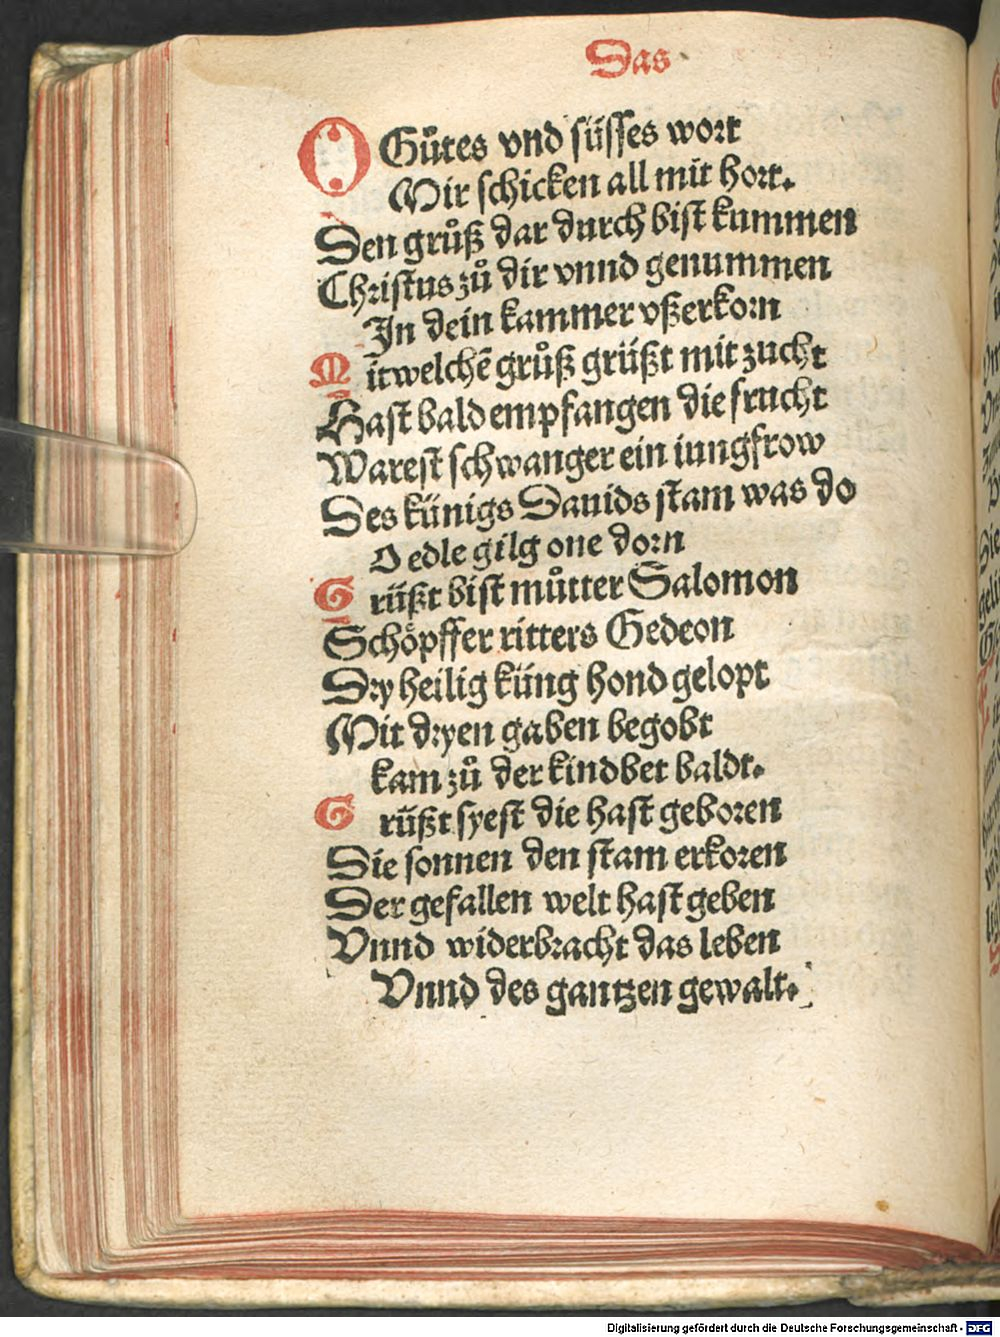 Das
O Gůtes vnd süsses wort
Mir schicken all mit hort.
Den grůß dar durch bist kummen
Christus zů dir vnnd genummen
In dein kammer vßerkorn
Mit welchē grůß grüßt mit zucht
Hast bald empfangen die frucht
Warest schwanger ein iungfrow
Des künigs Dauids stam was do
O edle gilg one dorn
Grüßt bist můtter Salomon
Schöpffer ritters Gedeon
Dry heilig küng hond gelopt
Mit dryen gaben begobt
kam zů der kindbet baldt.
Grüßt syest die hast geboren
Die sonnen den stam erkoren
Der gefallen welt hast geben
Vnnd widerbracht das leben
Vnnd des gantzen gewalt.
Digitalisierung gefördert durch die Deutsche Forschungsgemeinschaft - DFG